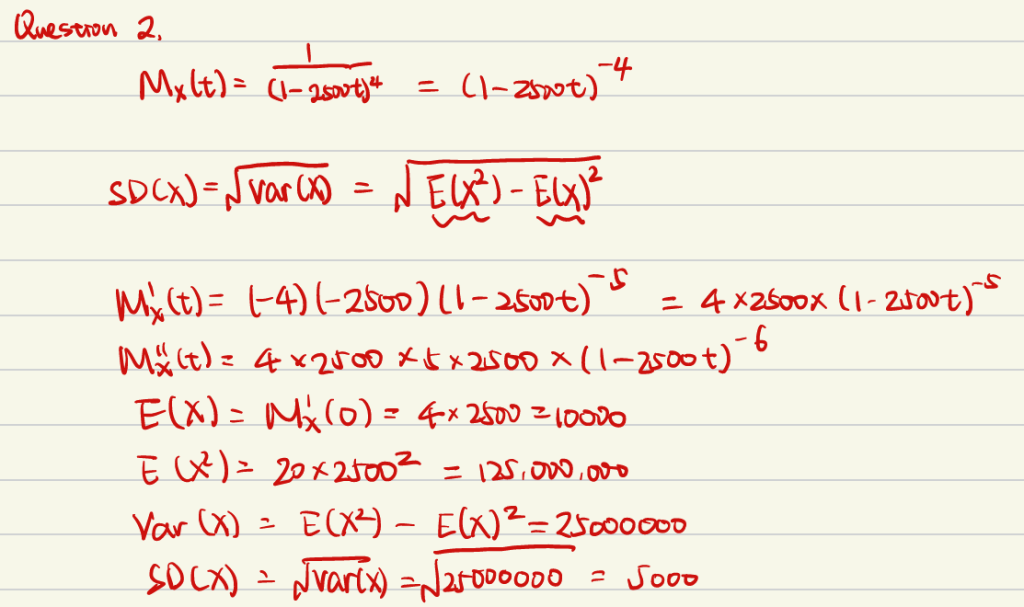 Question 2.
Mₓ(t) = 1/(1-2500t)⁴ = (1-2500t)⁻⁴
SD(X) = √var(X) = √E(X²) - E(X)²
Mₓ'(t) = (-4)(-2500)(1-2500t)⁻⁵ = 4×2500×(1-2500t)⁻⁵
Mₓ''(t) = 4×2500×5×2500×(1-2500t)⁻⁶
E(X) = Mₓ'(0) = 4×2500 = 10000
E(X²) = 20×2500² = 125,000,000
Var(X) = E(X²) - E(X)² = 25000000
SD(X) = √var(x) = √25000000 = 5000